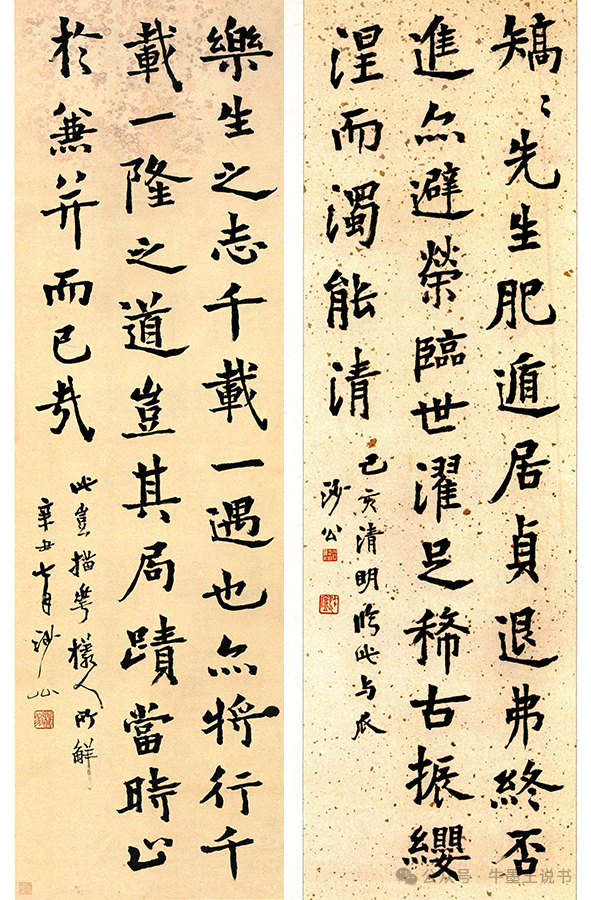 矯〻先生肥遁居貞退弗終否
進亦避榮臨世濯足稀古振纓
涅而濁能清
己亥清明臨此与瓜
沙公
樂生之志千載一遇也亦將行千
載一隆之道豈其局蹟當時止
於兼并而已哉
此豈描樣人所解
辛丑七月沙公
公众号 · 牛墨王说书